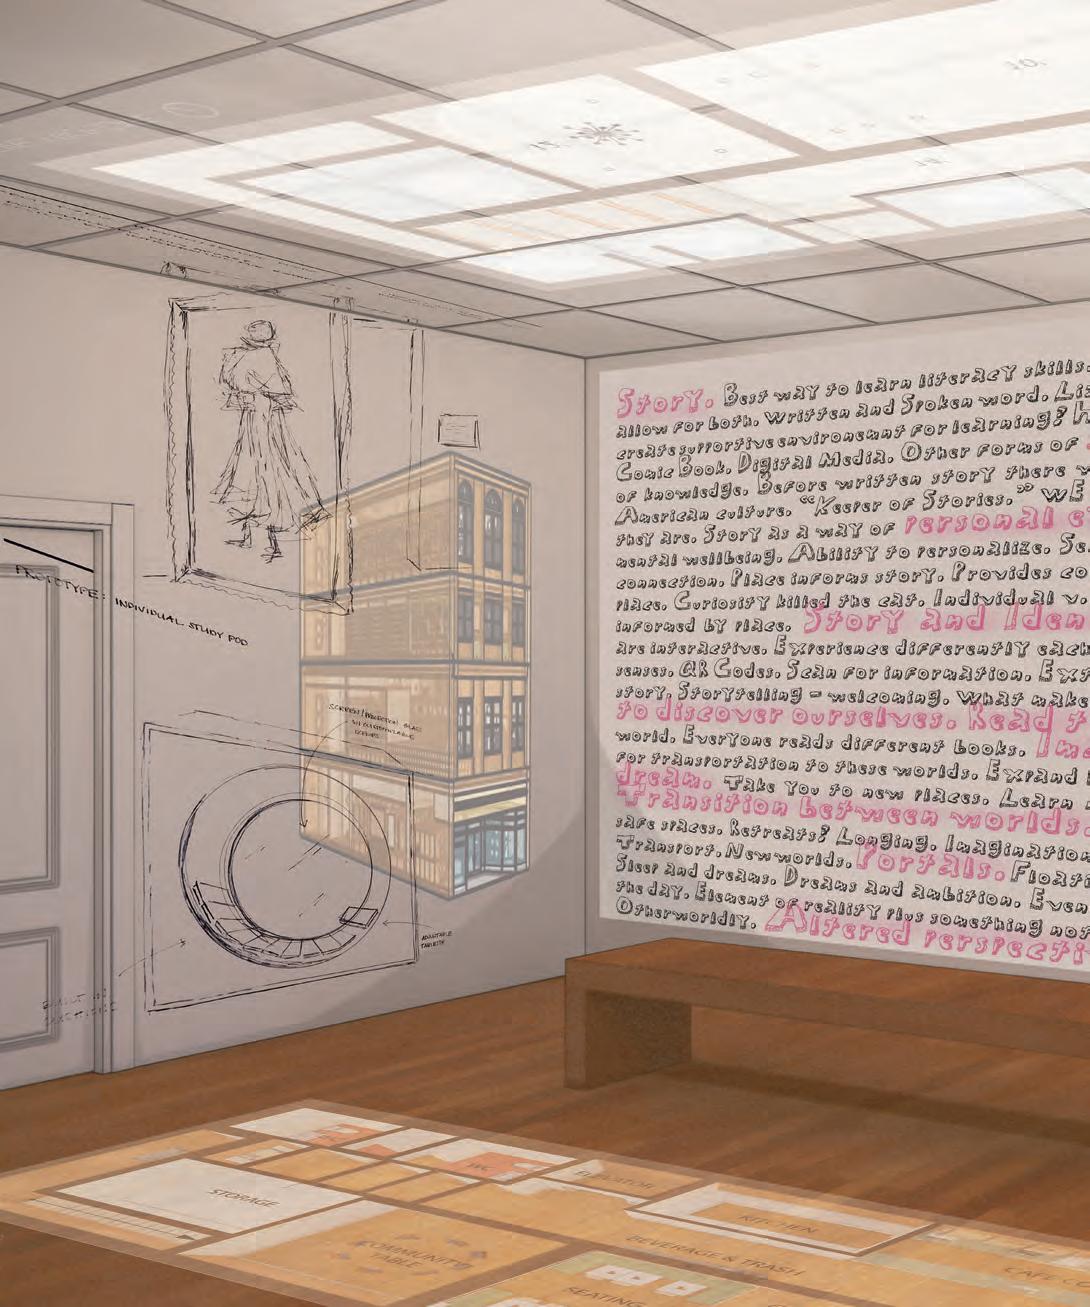 10.
15.
Story. Best way to learn literacy skills.
allow for both. Written and Spoken word. Li
create supportive environemnt for learning? H
Comic Book. Digital Media. Other forms of
of knowledge. Before written story there w
American culture. “Keeper of Stories.” WE
they are. Story as a way of personal e
mental wellbeing. Ability to personalize. Se
connection. Place informs story. Provides co
place. Curiosity killed the cat. Individual v.
informed by place. Story and Iden
are interactive. Experience differently each
senses. QR Codes. Scan for information. Ex
story. Storytelling = welcoming. What make
to discover ourselves. Read t
world. Everyone reads different books. Ima
for transportation to these worlds. Expand
dream. Take you to new places. Learn
Transition between worlds.
safe spaces. Retreats? Longing. Imagination
Transport. New worlds. Portals. Floati
Sleep and dreams. Dreams and ambition. Even
the day. Element of reality plus something not
Otherworldly. Altered perspecti
PROTOTYPE: INDIVIDUAL STUDY POD
SCREEN/PROJECTION GLASS
ADJUSTABLE
TABLETOP
WC
ELEVATOR
STORAGE
KITCHEN
COMMUNITY
TABLE
BEVERAGE & TRASH
CAFE CO
SEATING